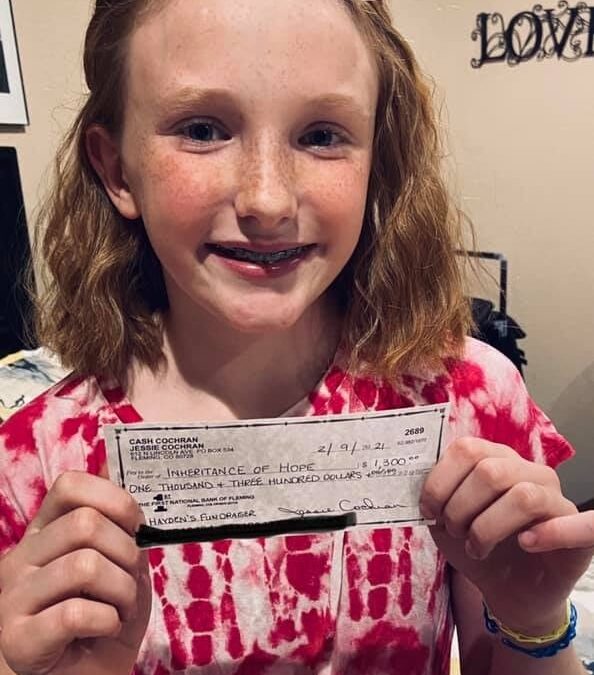 LOVE
CASH COCHRAN
JESSIE COCHRAN
612 N LINCOLN AVE PO BOX 534
FLEMING, CO 80728
2689
2/9/20 21
Pay to the Order of INHERITANCE OF HOPE $ 1,300.00
ONE THOUSAND & THREE HUNDRED DOLLARS &
1st
THE FIRST NATIONAL BANK OF FLEMING
HAYDEN'S FUNDRAGER Jessie Cochran